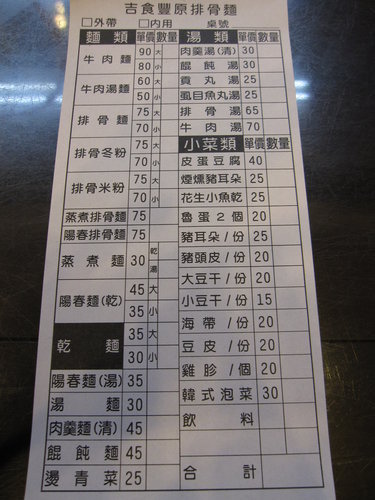 吉食豐原排骨麵
□外帶 □內用 桌號
麵類 單價 數量
牛肉麵 90 大
80 小
牛肉湯麵 60 大
50 小
排骨麵 75 大
70 小
排骨冬粉 75 大
70 小
排骨米粉 75 大
70 小
蒸煮排骨麵 75
陽春排骨麵 75
蒸煮麵 30 乾 湯
陽春麵(乾) 45 大
35 小
乾麵 35 大
30 小
陽春麵(湯) 35
湯麵 30
肉羹麵(清) 45
餛飩麵 45
燙青菜 25
湯類 單價 數量
肉羹湯(清) 30
餛飩湯 30
貢丸湯 25
虱目魚丸湯 25
排骨湯 65
牛肉湯 70
小菜類 單價 數量
皮蛋豆腐 40
煙燻豬耳朵 25
花生小魚乾 25
魯蛋2個 20
豬耳朵/份 25
豬頭皮/份 20
大豆干/份 20
小豆干/份 15
海帶/份 20
豆皮/份 20
雞胗/個 20
韓式泡菜 30
飲料
合計